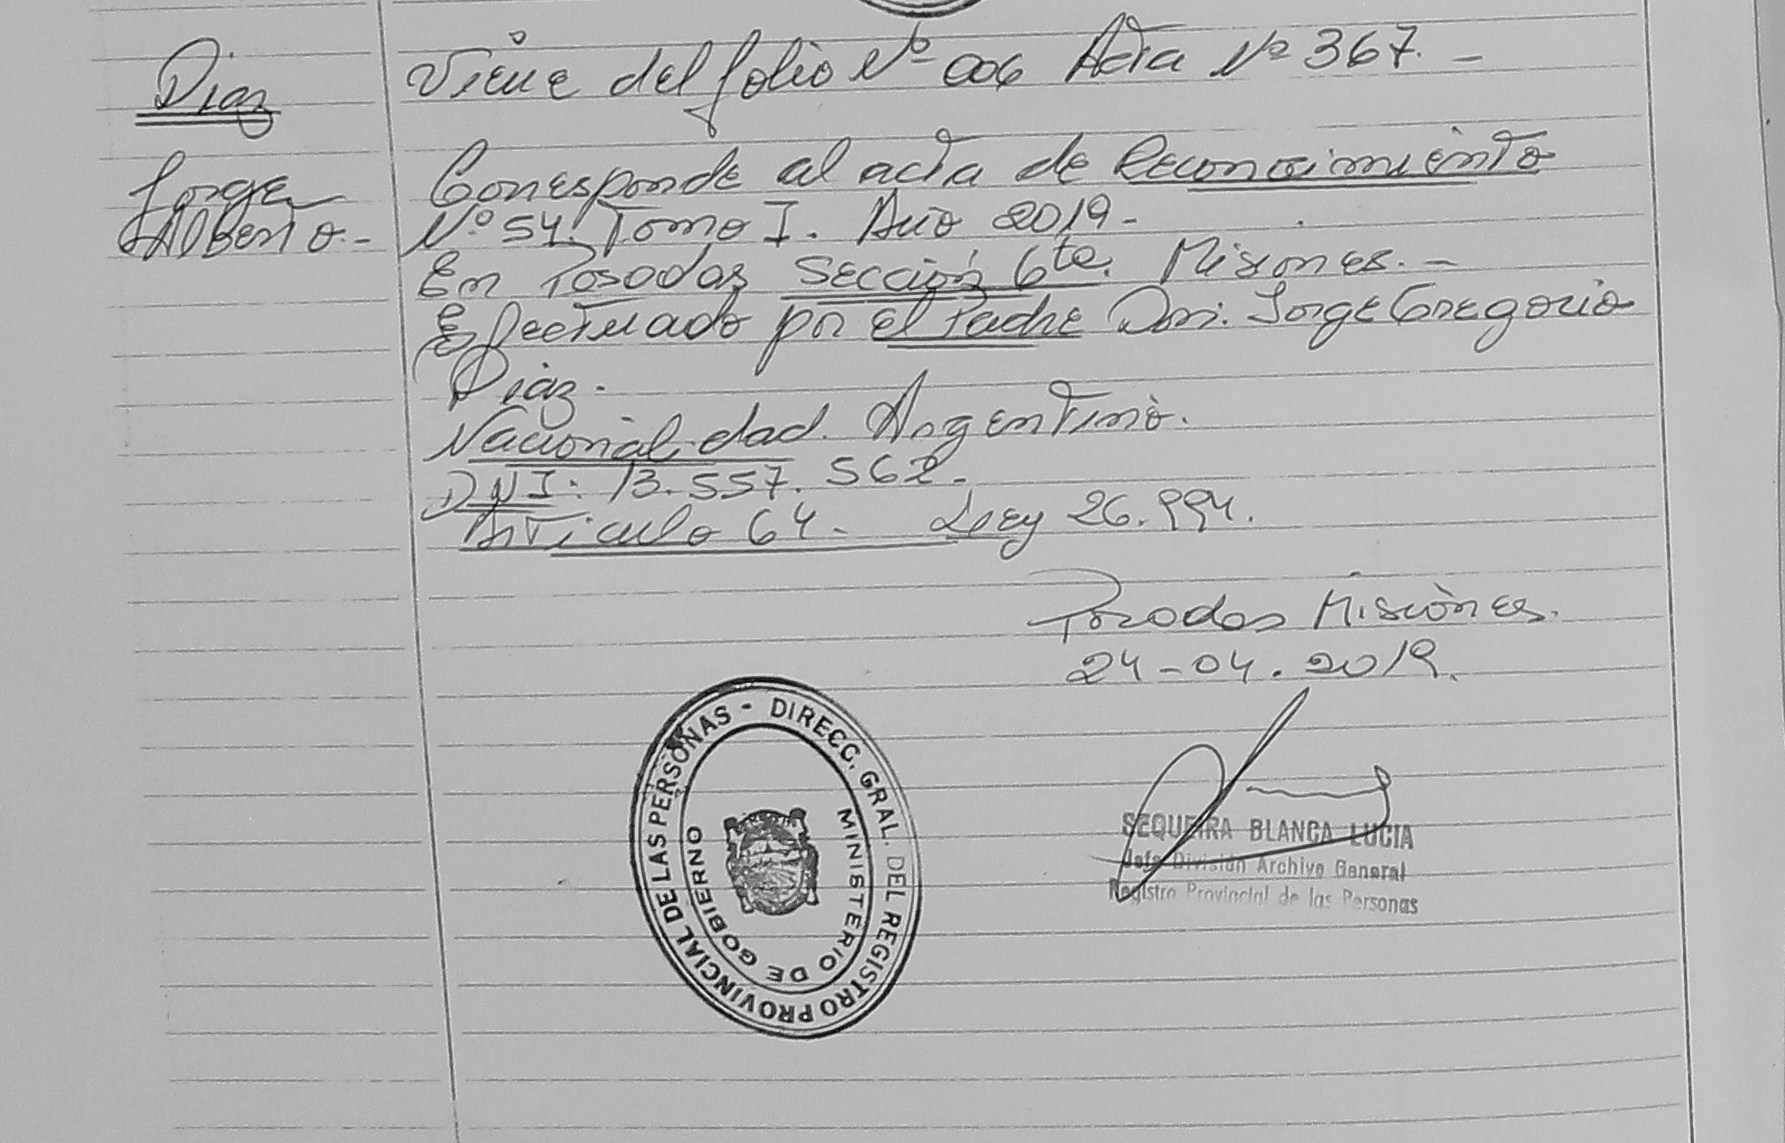 Diaz
Jorge
Alberto.-
Viene del folio Nº 006 Acta Nº 367.-
Corresponde al acta de Reconocimiento
Nº 54. Tomo I. Año 2019-
En Posadas Sección 6ta. Misiones.-
Efectuado por el Padre Don. Jorge Gregorio
Diaz.
Nacionalidad. Argentino.
DNI: 13.557.562.
Articulo 64. Ley 26.994.
Posadas Misiones.
24-04.2019.
DIRECC. GRAL. DEL REGISTRO PROVINCIAL DE LAS PERSONAS -
MINISTERIO DE GOBIERNO
SEQUEIRA BLANCA LUCIA
Jefe División Archivo General
Registro Provincial de las Personas